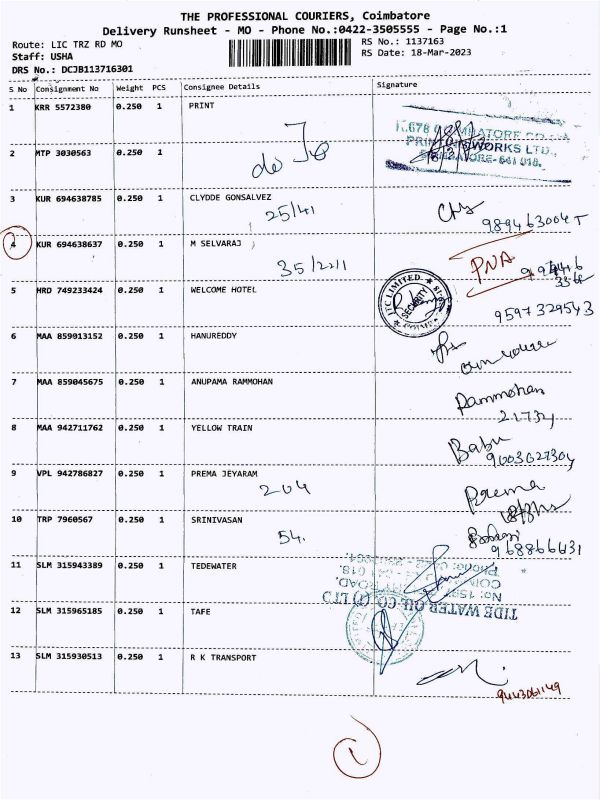 THE PROFESSIONAL COURIERS, Coimbatore
Delivery Runsheet - MO - Phone No.:0422-3505555 - Page No.:1
Route: LIC TRZ RD MO
RS No.: 1137163
Staff: USHA
RS Date: 18-Mar-2023
DRS No.: DCJB113716301
S No Consignment No Weight PCS Consignee Details Signature
1 KRR 5572380 0.250 1 PRINT
PRINTING WORKS LTD.,
2 MTP 3030563 0.250 1
do
3 KUR 694638785 0.250 1 CLYDDE GONSALVEZ
25/41
4 KUR 694638637 0.250 1 M SELVARAJ
35/2211
PNA
5 HRD 749233424 0.250 1 WELCOME HOTEL
ITC LIMITED.
SECURITY
9597329543
6 MAA 859013152 0.250 1 HANUREDDY
7 MAA 859045675 0.250 1 ANUPAMA RAMMOHAN
Rammohan
8 MAA 942711762 0.250 1 YELLOW TRAIN
Babu
9003027304
9 VPL 942786827 0.250 1 PREMA JEYARAM
204
Prema
10 TRP 7960567 0.250 1 SRINIVASAN
54.
11 SLM 315943389 0.250 1 TEDEWATER
TIDE WATER OIL CO. (I) LTD
12 SLM 315965185 0.250 1 TAFE
13 SLM 315930513 0.250 1 R K TRANSPORT
9443061149
1